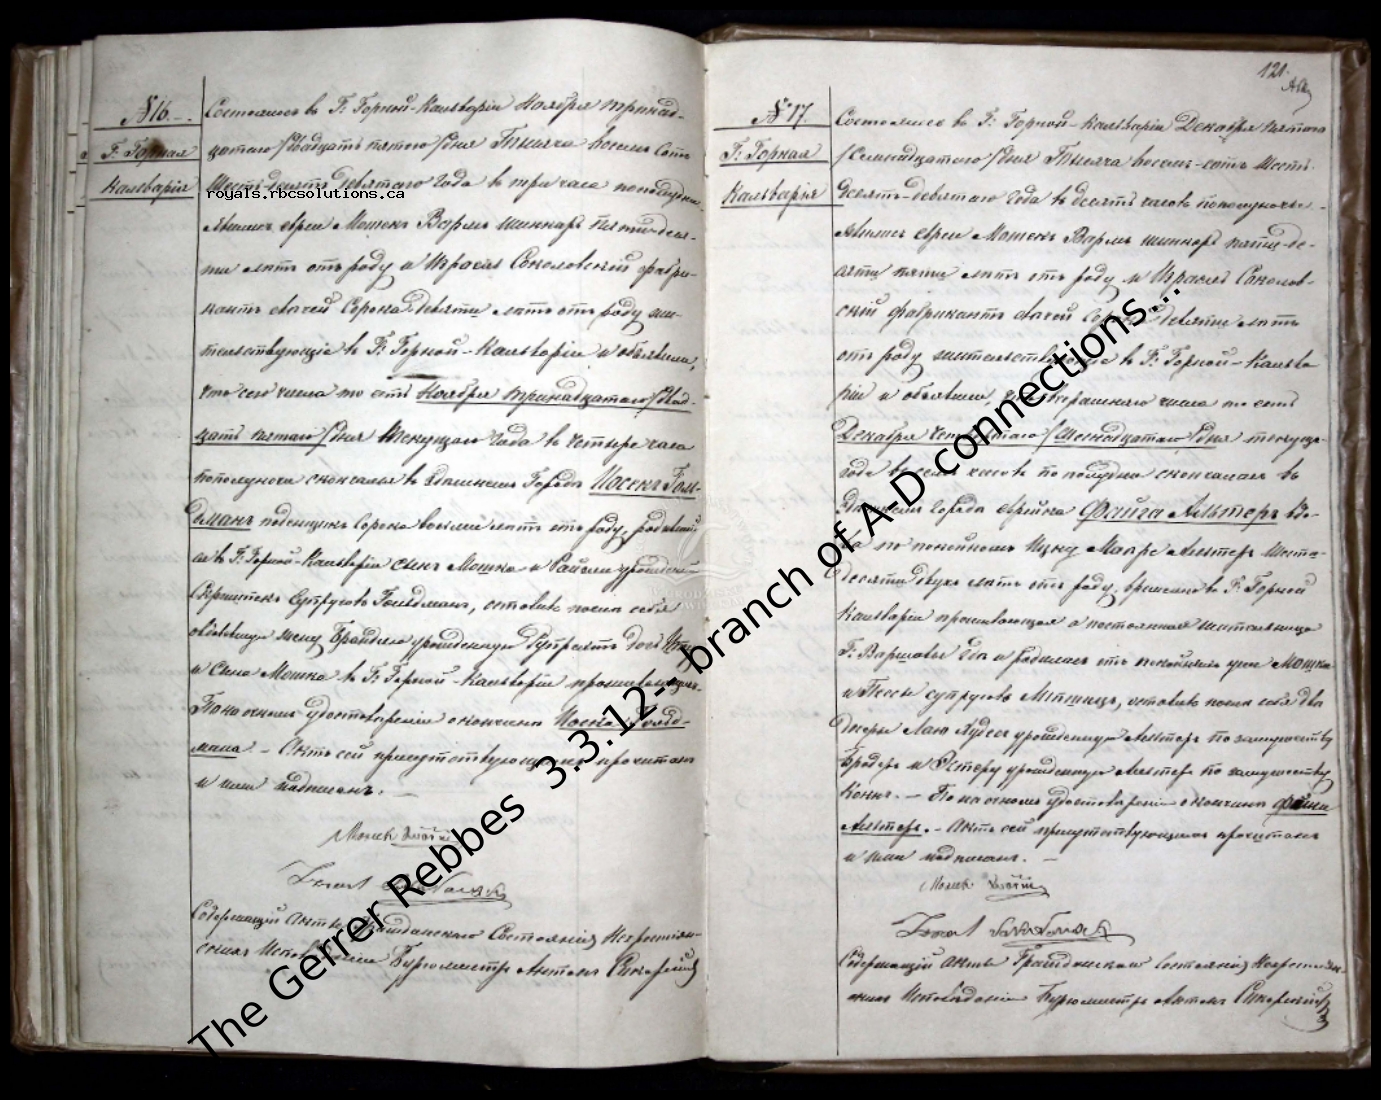 № 16.
Г. Горная
Кальварія
Состоялось въ Г. Горной-Кальваріи Ноября тринад-
цатаго /двадцать пятаго/ дня Тысяча восемь сотъ
Шестьдесятъ девятаго Года въ три часа пополудни
royals.rbcsolutions.ca
Явились евреи Мошекъ Вармъ шинкарь пятидеся-
ти лѣтъ отъ роду и Израель Соколовскій фабри-
кантъ свѣчей Сорока девяти лѣтъ отъ роду жи-
тельствующіе въ Г. Горной-Кальваріи и объявили,
что сего числа то есть Ноября тринадцатаго /двад-
цать пятаго/ дня текущаго Года въ четыре часа
пополуночи скончался въ здѣшнемъ Городѣ Іосекъ Гольд-
манъ поденщикъ Сорока восьми лѣтъ отъ роду, родившій-
ся въ Г. Горной-Кальваріи сынъ Мошка и Райзли урожденной
супруговъ Гольдманъ, оставивъ послѣ себя
овдовѣвшую жену Брандлю урожденную
и Сына Мошка въ Г. Горной-Кальваріи проживающихъ.
По наочномъ удостовѣреніи о кончинѣ Іоска Гольд-
мана. - Актъ сей присутствующимъ прочитанъ
и нами подписанъ. —
Mosiek
Izrael
Содержащій Акты Гражданскаго Состоянія Нехристіян-
скихъ Исповѣданій Бургомистръ Антонъ
121.
№ 17.
Г. Горная
Кальварія
Состоялось въ Г. Горной-Кальваріи Декабря пятаго
/Семнадцатаго/ дня Тысяча восемь-сотъ Шесть-
десятъ-девятаго Года въ десять часовъ пополуночи -
Явились евреи Мошекъ Вармъ шинкарь пяти-де-
сяти пяти лѣтъ отъ роду и Израель Соколов-
скій фабрикантъ свѣчей Сорока девяти лѣтъ
отъ роду жительствующіе въ Г. Горной-Кальва-
ріи и объявили, что вчерашняго числа то есть
Декабря четвертаго /Шестнадцатаго/ дня текуща-
Года въ семь часовъ по полудни скончалась въ
здѣшнемъ Городѣ еврейка Файга Альтеръ вдо-
ва по покойномъ Ицку Маере Альтеръ Шести-
десяти двухъ лѣтъ отъ роду, временно въ Г. Горной
Кальваріи проживающая а постоянная жительница
Г. Варшавы гдѣ и родилась отъ покойныхъ уже Мошка
и Песы супруговъ оставивъ послѣ себя двѣ
дочери Лаю урожденную Альтеръ по замужеству
Бродеръ и Эстеру урожденную Альтеръ по замужеству
- По наочномъ удостовѣреніи о кончинѣ Файги
Альтеръ. - Актъ сей присутствующимъ прочитанъ
и нами подписанъ. —
Mosiek
Izrael
Содержащій Акты Гражданскаго Состоянія Нехристіян-
скихъ Исповѣданій Бургомистръ Антонъ
The Gerrer Rebbes 3.3.12-- branch of A-D connections...